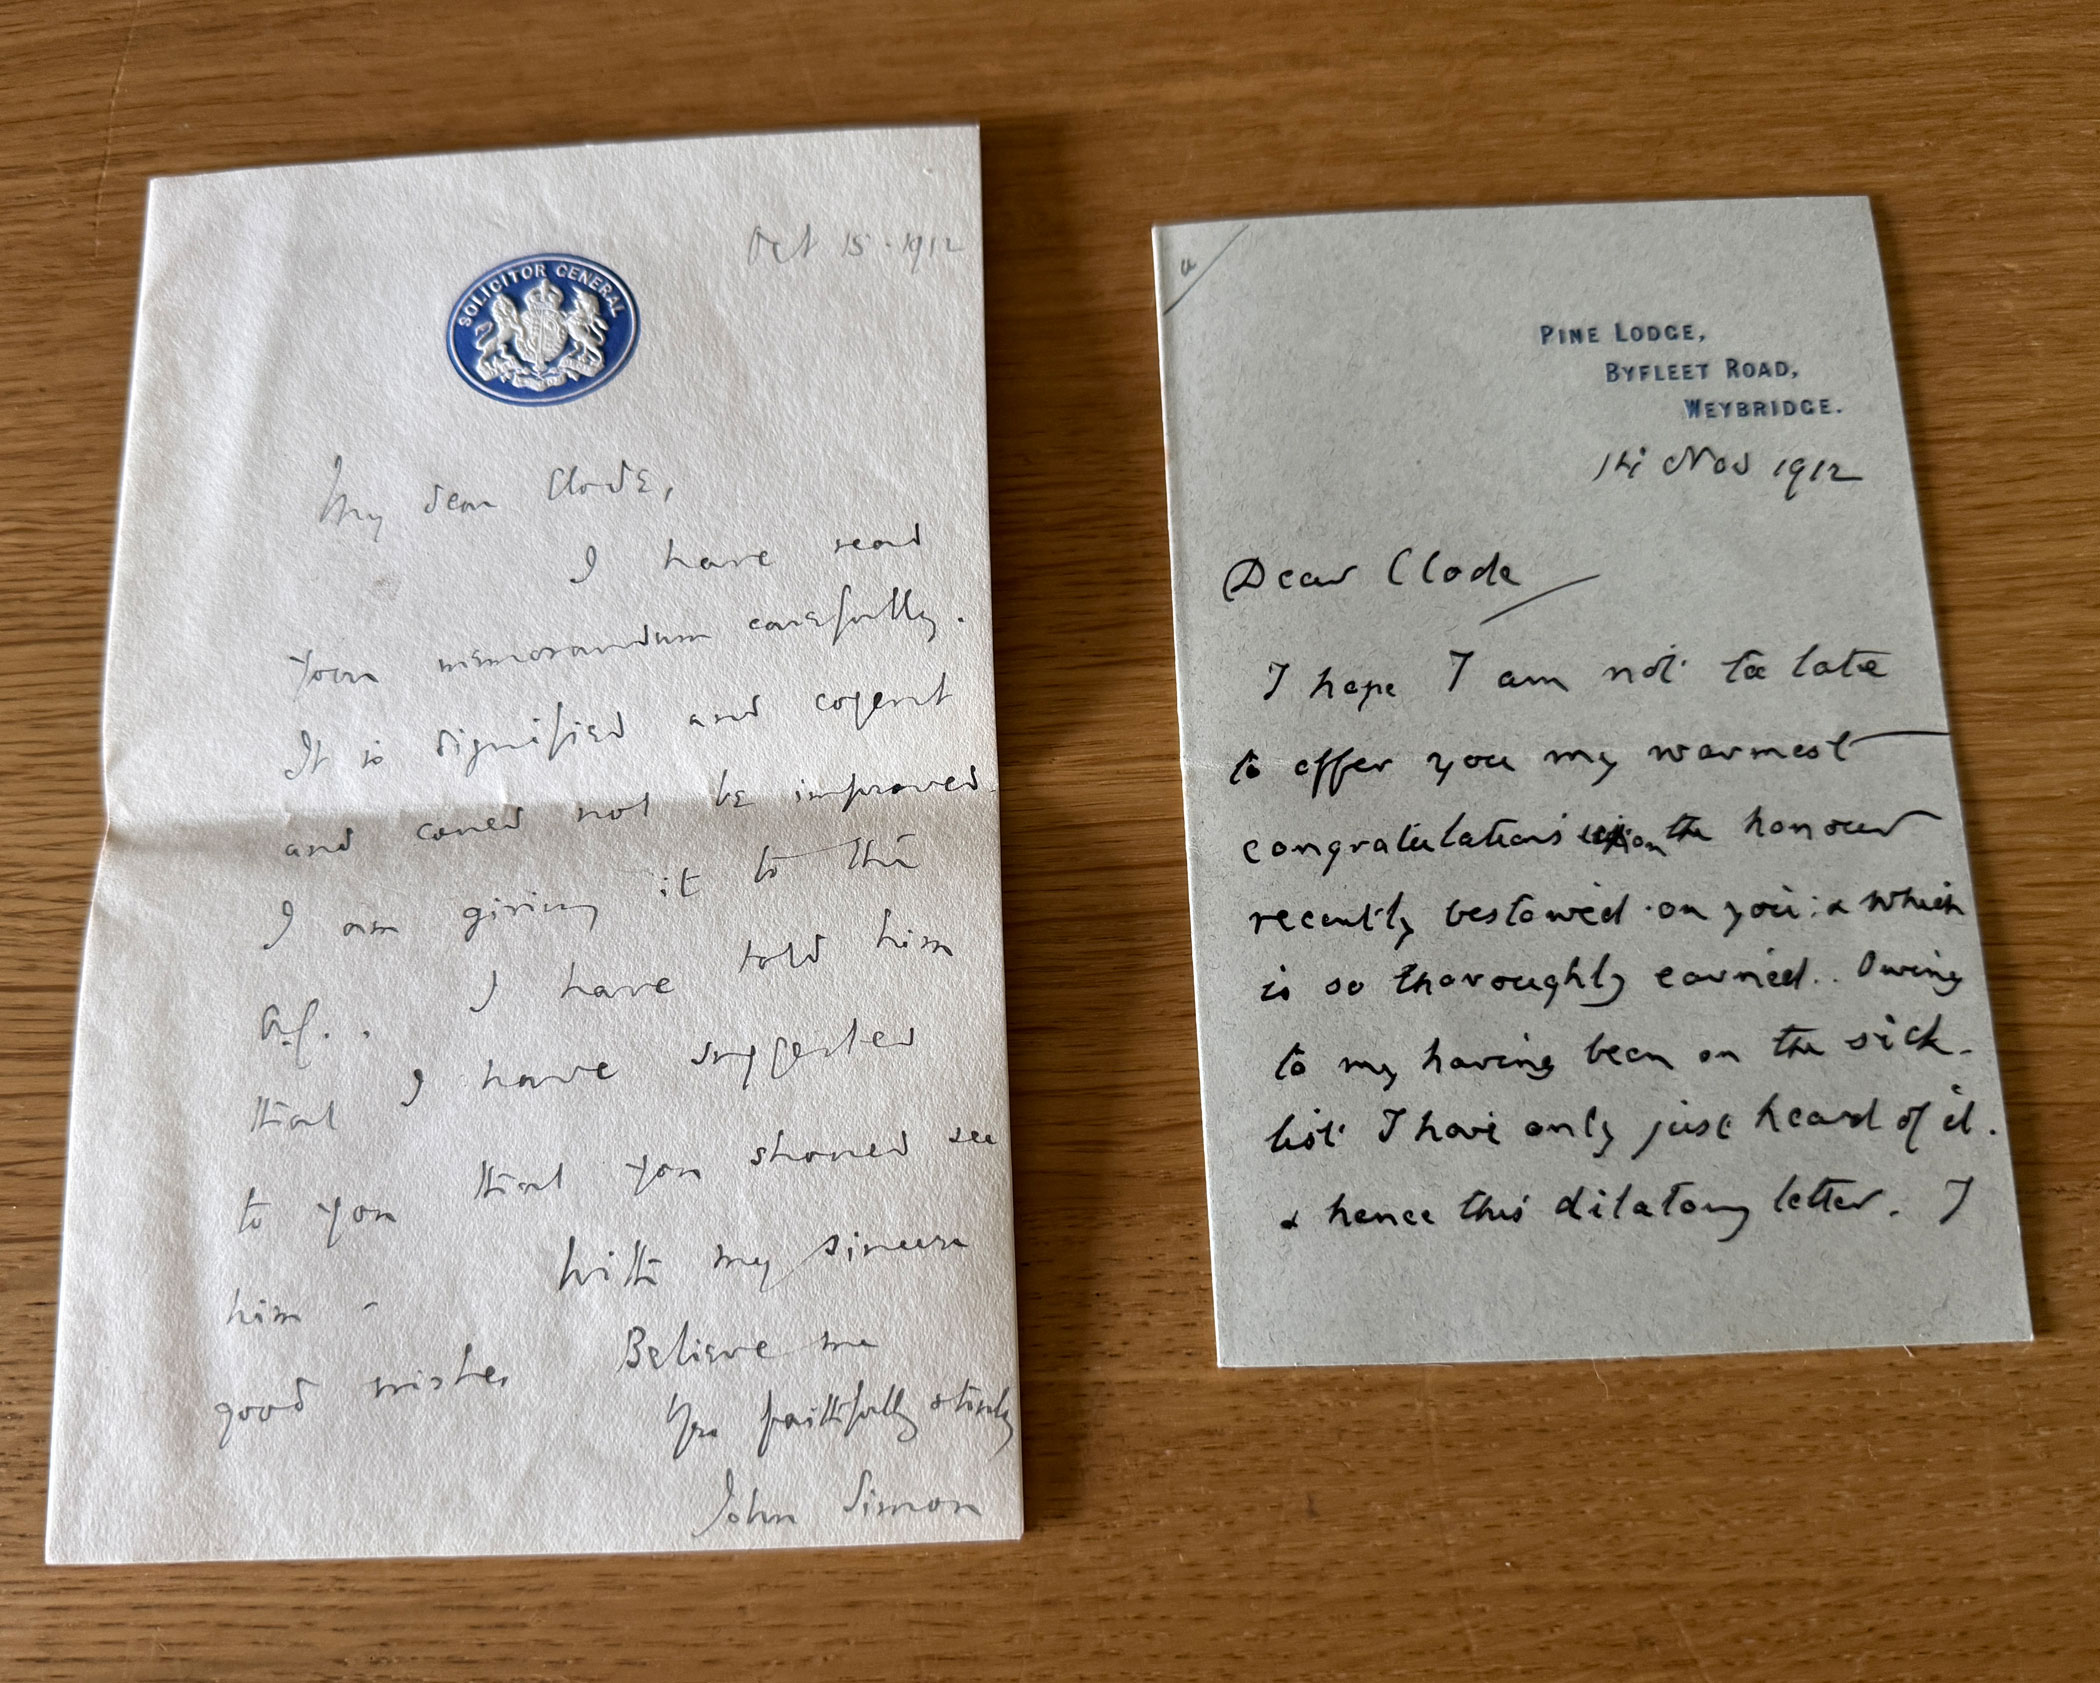 Oct 15. 1912
SOLICITOR GENERAL
My dear Clode,
I have read
your memorandum carefully.
It is dignified and cogent
and could not be improved.
I am giving it to the
A.G.. I have told him
that I have suggested
to you that you should see
him - With my sincere
good wishes Believe me
Yrs faithfully & truly
John Simon
PINE LODGE,
BYFLEET ROAD,
WEYBRIDGE.
14 Nov 1912
Dear Clode
I hope I am not too late
to offer you my warmest
congratulations on the honour
recently bestowed on you: & which
is so thoroughly earned.. Owing
to my having been on the sick-
list I have only just heard of it.
& hence this dilatory letter. I